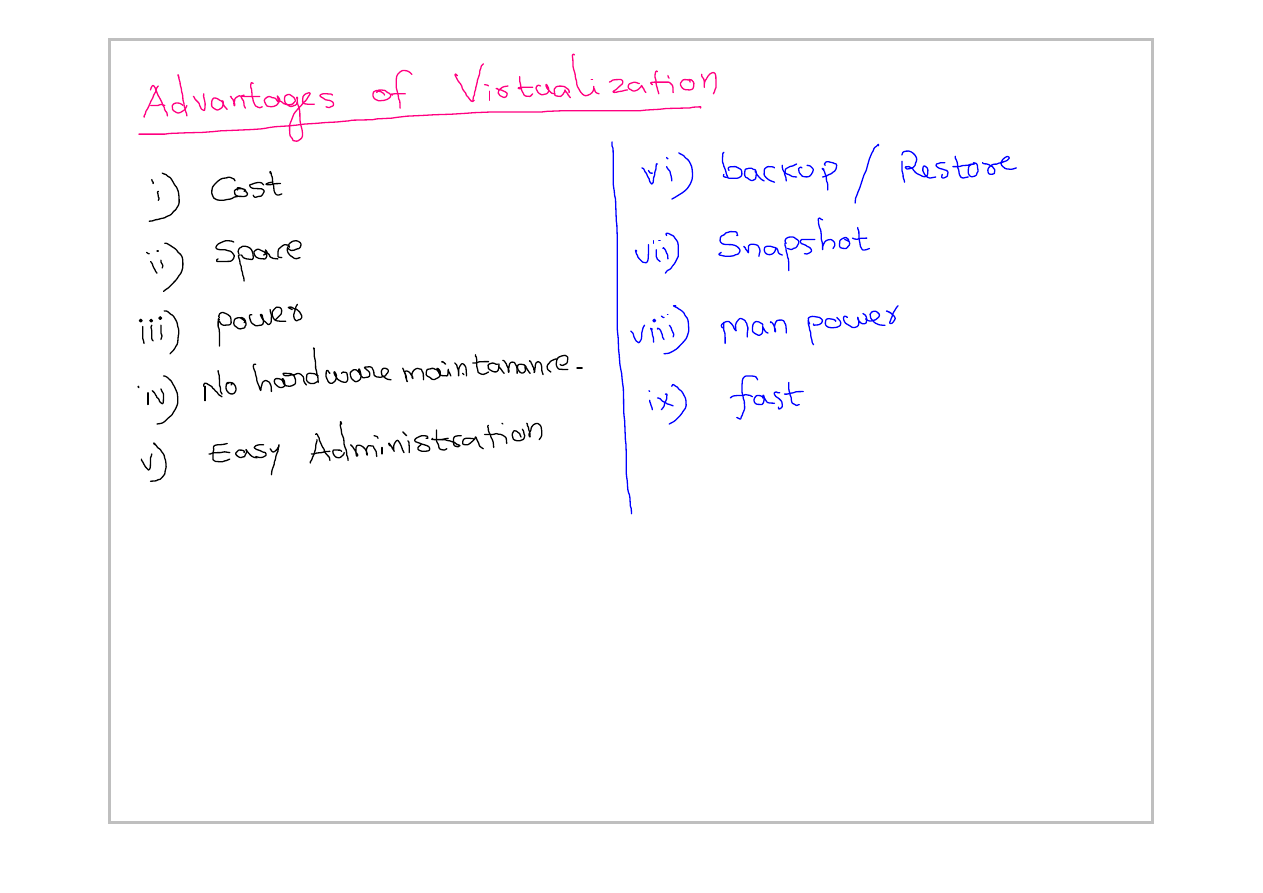 Advantages of Virtualization
i) Cost
ii) Space
iii) power
iv) No hardware maintanance.
v) Easy Administration
vi) backup / Restore
vii) Snapshot
viii) man power
ix) fast